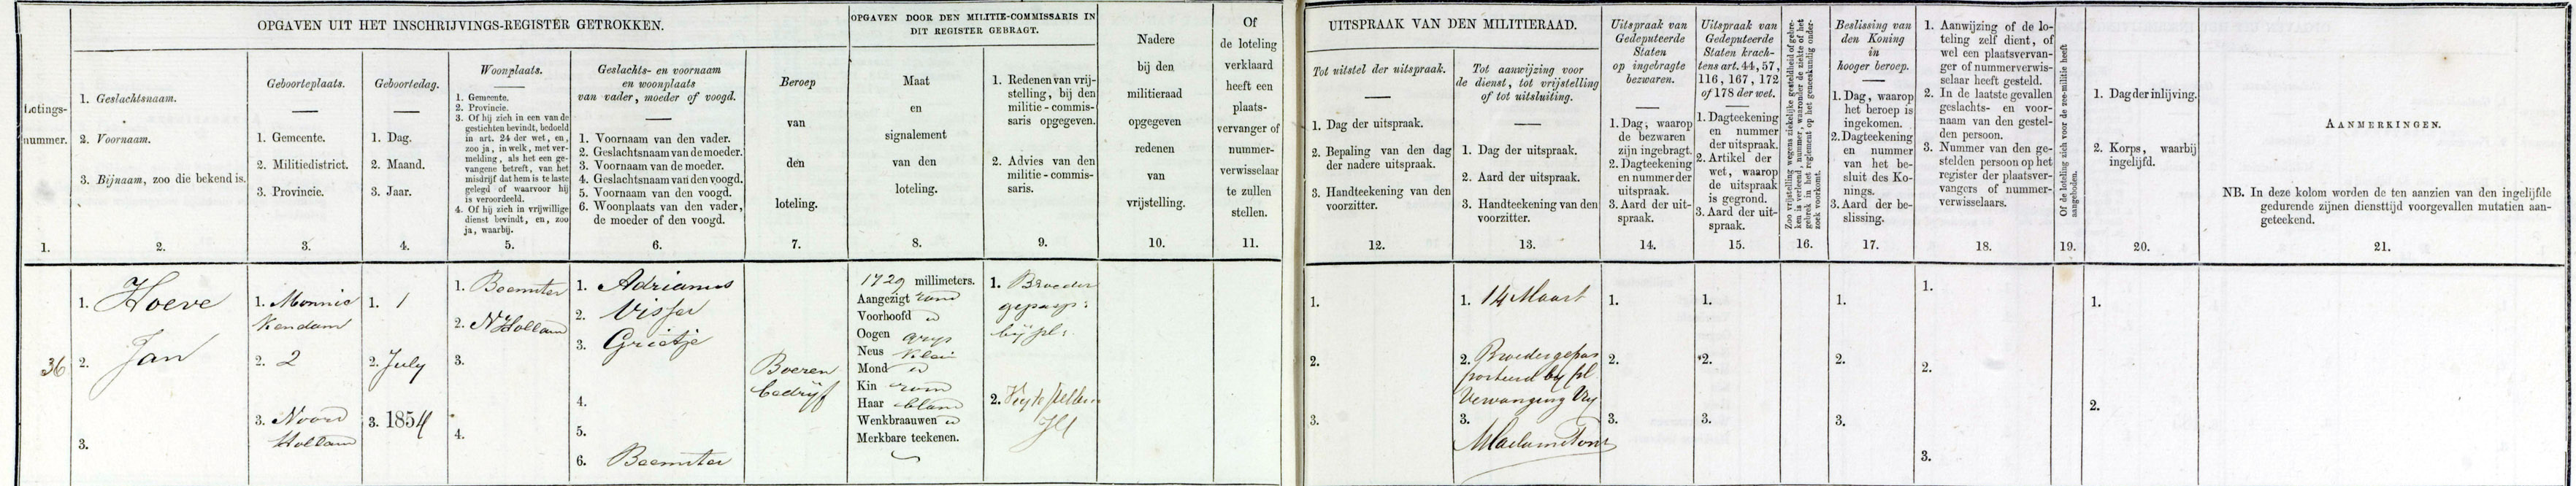 OPGAVEN UIT HET INSCHRIJVINGS-REGISTER GETROKKEN.
Lotings-
nummer.
1.
1. Geslachtsnaam.
2. Voornaam.
3. Bijnaam, zoo die bekend is.
2.
Geboorteplaats.
1. Gemeente.
2. Militiedistrict.
3. Provincie.
3.
Geboortedag.
1. Dag.
2. Maand.
3. Jaar.
4.
Woonplaats.
1. Gemeente.
2. Provincie.
3. Of hij zich in een van de
gestichten bevindt, bedoeld
in art. 24 der wet, en,
zoo ja, in welk, met ver-
melding, als het een ge-
vangene betreft, van het
misdrijf dat hem is te laste
gelegd of waarvoor hij
is veroordeeld.
4. Of hij zich in vrijwillige
dienst bevindt, en, zoo
ja, waarbij.
5.
Geslachts- en voornaam
en woonplaats
van vader, moeder of voogd.
1. Voornaam van den vader.
2. Geslachtsnaam van de moeder.
3. Voornaam van de moeder.
4. Geslachtsnaam van den voogd.
5. Voornaam van den voogd.
6. Woonplaats van den vader,
de moeder of den voogd.
6.
Beroep
van
den
loteling.
7.
OPGAVEN DOOR DEN MILITIE-COMMISSARIS IN
DIT REGISTER GEBRAGT.
Maat
en
signalement
van den
loteling.
8.
1. Redenen van vrij-
stelling, bij den
militie-commis-
saris opgegeven.
2. Advies van den
militie-commis-
saris.
9.
Nadere
bij den
militieraad
opgegeven
redenen
van
vrijstelling.
10.
Of
de loteling
verklaard
heeft een
plaats-
vervanger of
nummer-
verwisselaar
te zullen
stellen.
11.
UITSPRAAK VAN DEN MILITIERAAD.
Tot uitstel der uitspraak.
1. Dag der uitspraak.
2. Bepaling van den dag
der nadere uitspraak.
3. Handteekening van den
voorzitter.
12.
Tot aanwijzing voor
de dienst, tot vrijstelling
of tot uitsluiting.
1. Dag der uitspraak.
2. Aard der uitspraak.
3. Handteekening van den
voorzitter.
13.
Uitspraak van
Gedeputeerde
Staten
op ingebragte
bezwaren.
1. Dag, waarop
de bezwaren
zijn ingebragt.
2. Dagteekening
en nummer der
uitspraak.
3. Aard der uit-
spraak.
14.
Uitspraak van
Gedeputeerde
Staten krach-
tens art. 44, 57,
116, 167, 172
of 178 der wet.
1. Dagteekening
en nummer
der uitspraak.
2. Artikel der
wet, waarop
de uitspraak
is gegrond.
3. Aard der uit-
spraak.
15.
Zoo vrijstelling wegens ziekelijke gesteldheid of gebre-
ken is verleend, nummer, waaronder de ziekte of het
gebrek in het reglement op het geneeskundig onder-
zoek voorkomt.
16.
Beslissing van
den Koning
in
hooger beroep.
1. Dag, waarop
het beroep is
ingekomen.
2. Dagteekening
en nummer
van het be-
sluit des Ko-
nings.
3. Aard der be-
slissing.
17.
1. Aanwijzing of de lo-
teling zelf dient, of
wel een plaatsvervan-
ger of nummerverwis-
selaar heeft gesteld.
2. In de laatste gevallen
geslachts- en voor-
naam van den gestel-
den persoon.
3. Nummer van den ge-
stelden persoon op het
register der plaatsver-
vangers of nummer-
verwisselaars.
18.
Of de loteling zich voor de zee-militie heeft
aangeboden.
19.
1. Dag der inlijving.
2. Korps, waarbij
ingelijfd.
20.
AANMERKINGEN.
NB. In deze kolom worden de ten aanzien van den ingelijfde
gedurende zijnen diensttijd voorgevallen mutatien aan-
geteekend.
21.
36
1. Hoeve
2. Jan
3.
1. Monnic
Kendam
2. 2
3. Noord
Holland
1. 1
2. July
3. 1854
1. Beemster
2. N Holland
3.
4.
1. Adrianus
2. Visser
3. Grietje
4.
5.
6. Beemster
Boeren
bedrijf
1729 millimeters.
Aangezigt rond
Voorhoofd id
Oogen grys
Neus klein
Mond id
Kin rond
Haar blond
Wenkbraauwen id
Merkbare teekenen.
1. Broeder
gepasp:
bij pl:
2.
1.
2.
3.
1. 14 Maart
2. Broeder gepas
porteerd by pl
Vervanging Vry
3.
1.
2.
3.
1.
2.
3.
1.
2.
3.
1.
2.
3.
1.
2.